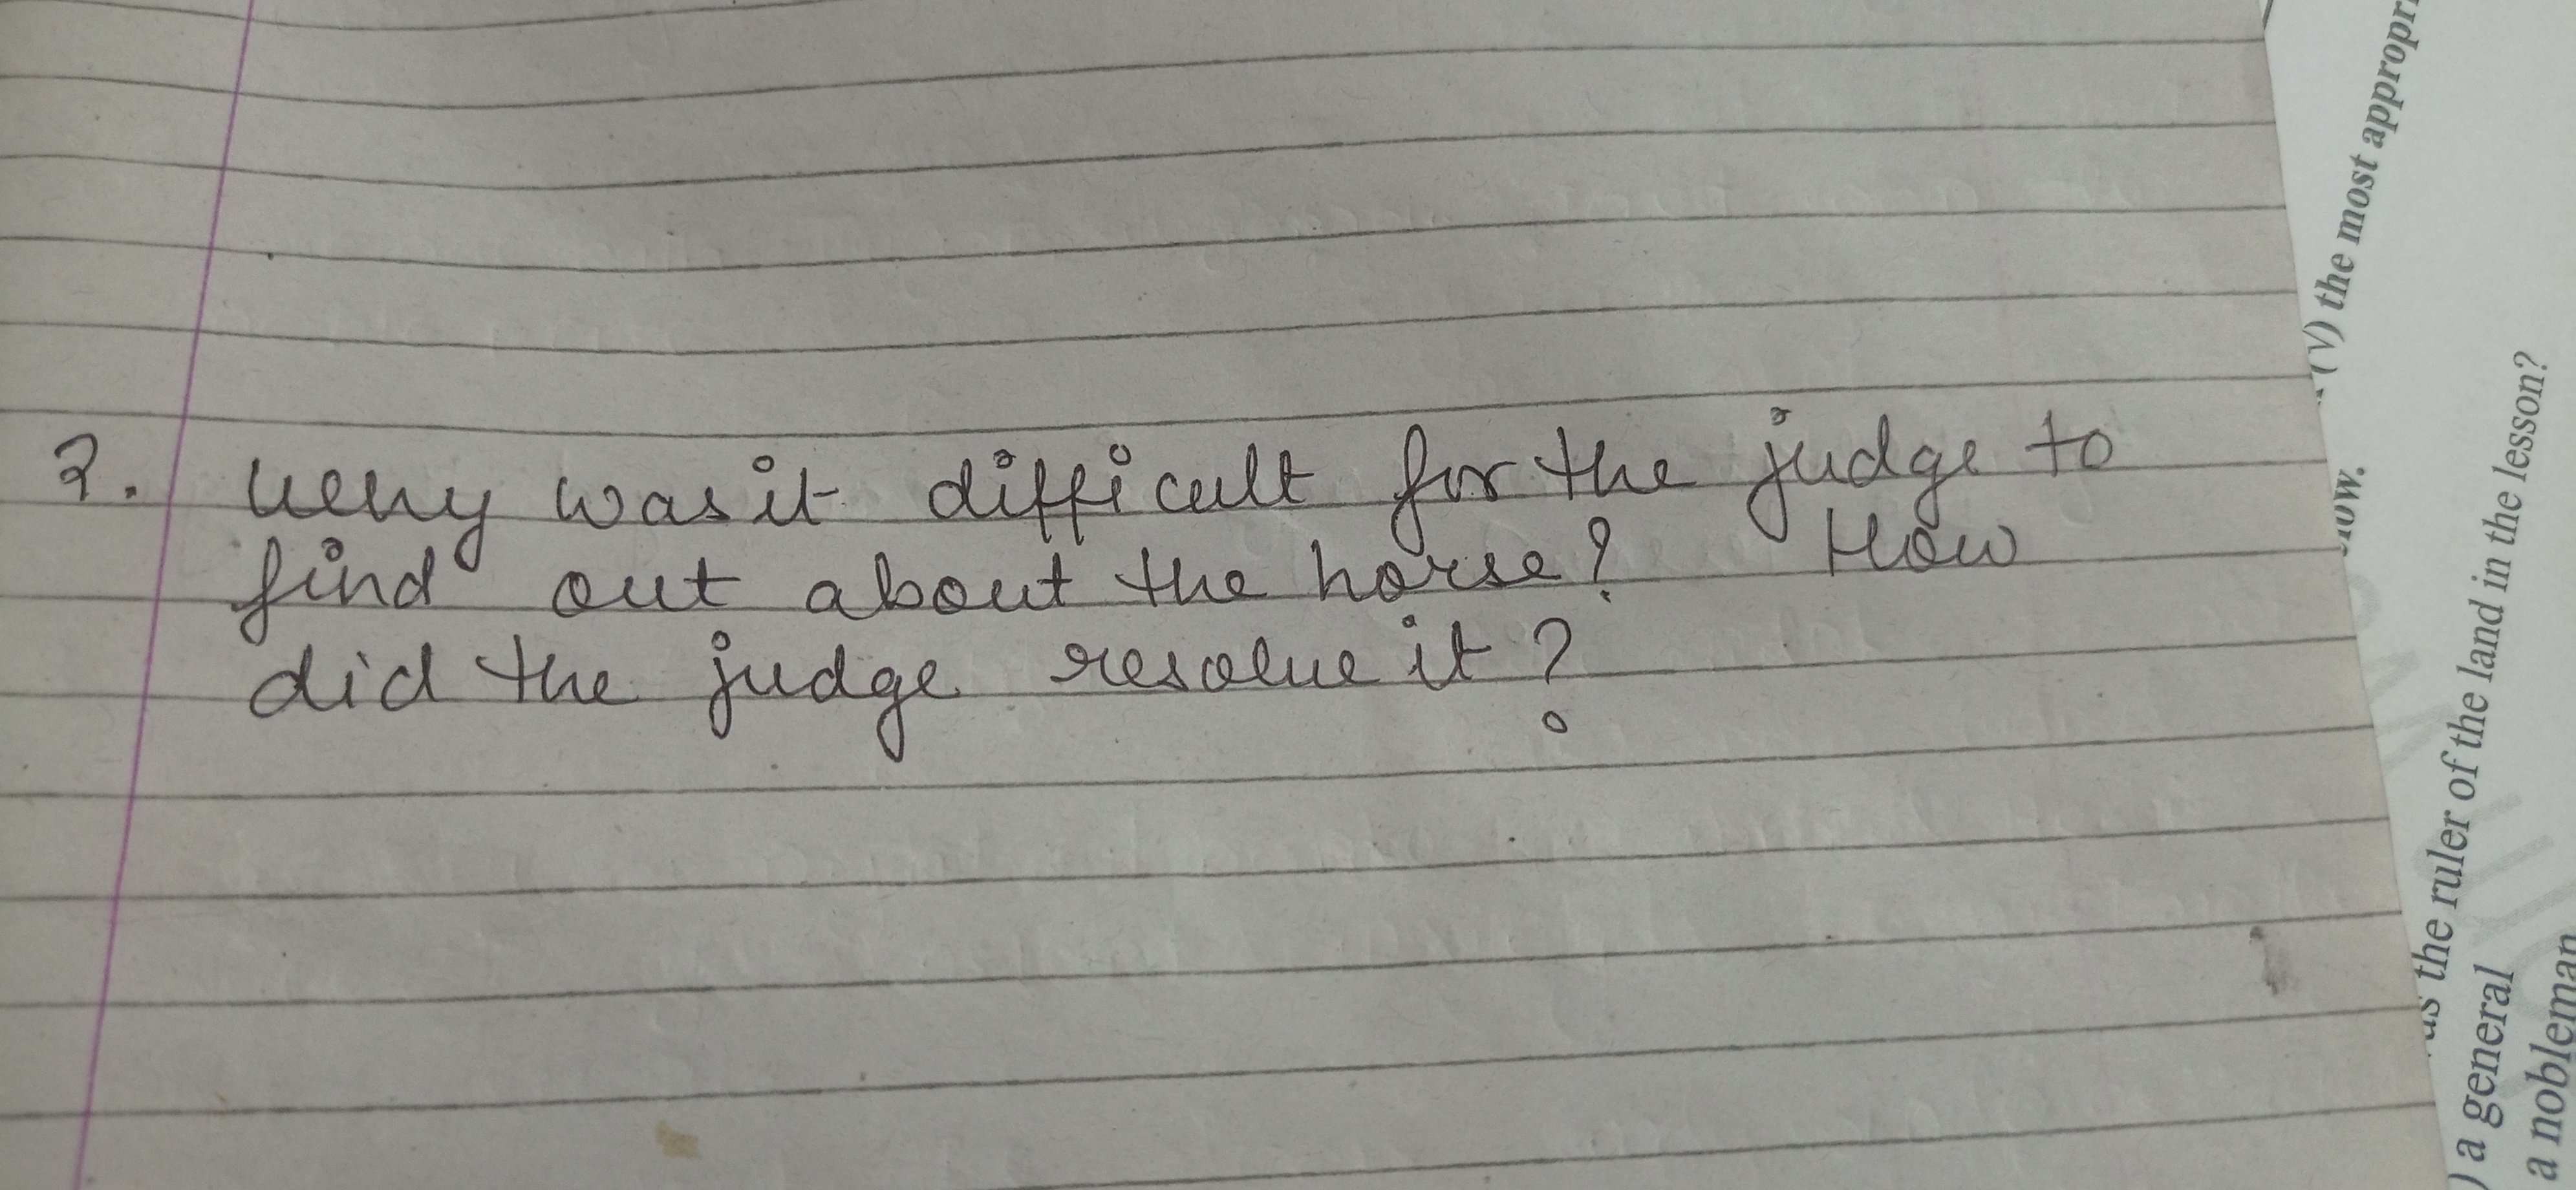 2. Why was it difficult for the judge to
find out about the horse? How
did the judge resolve it?
(V) the most appropri
low.
as the ruler of the land in the lesson?
) a general
a nobleman